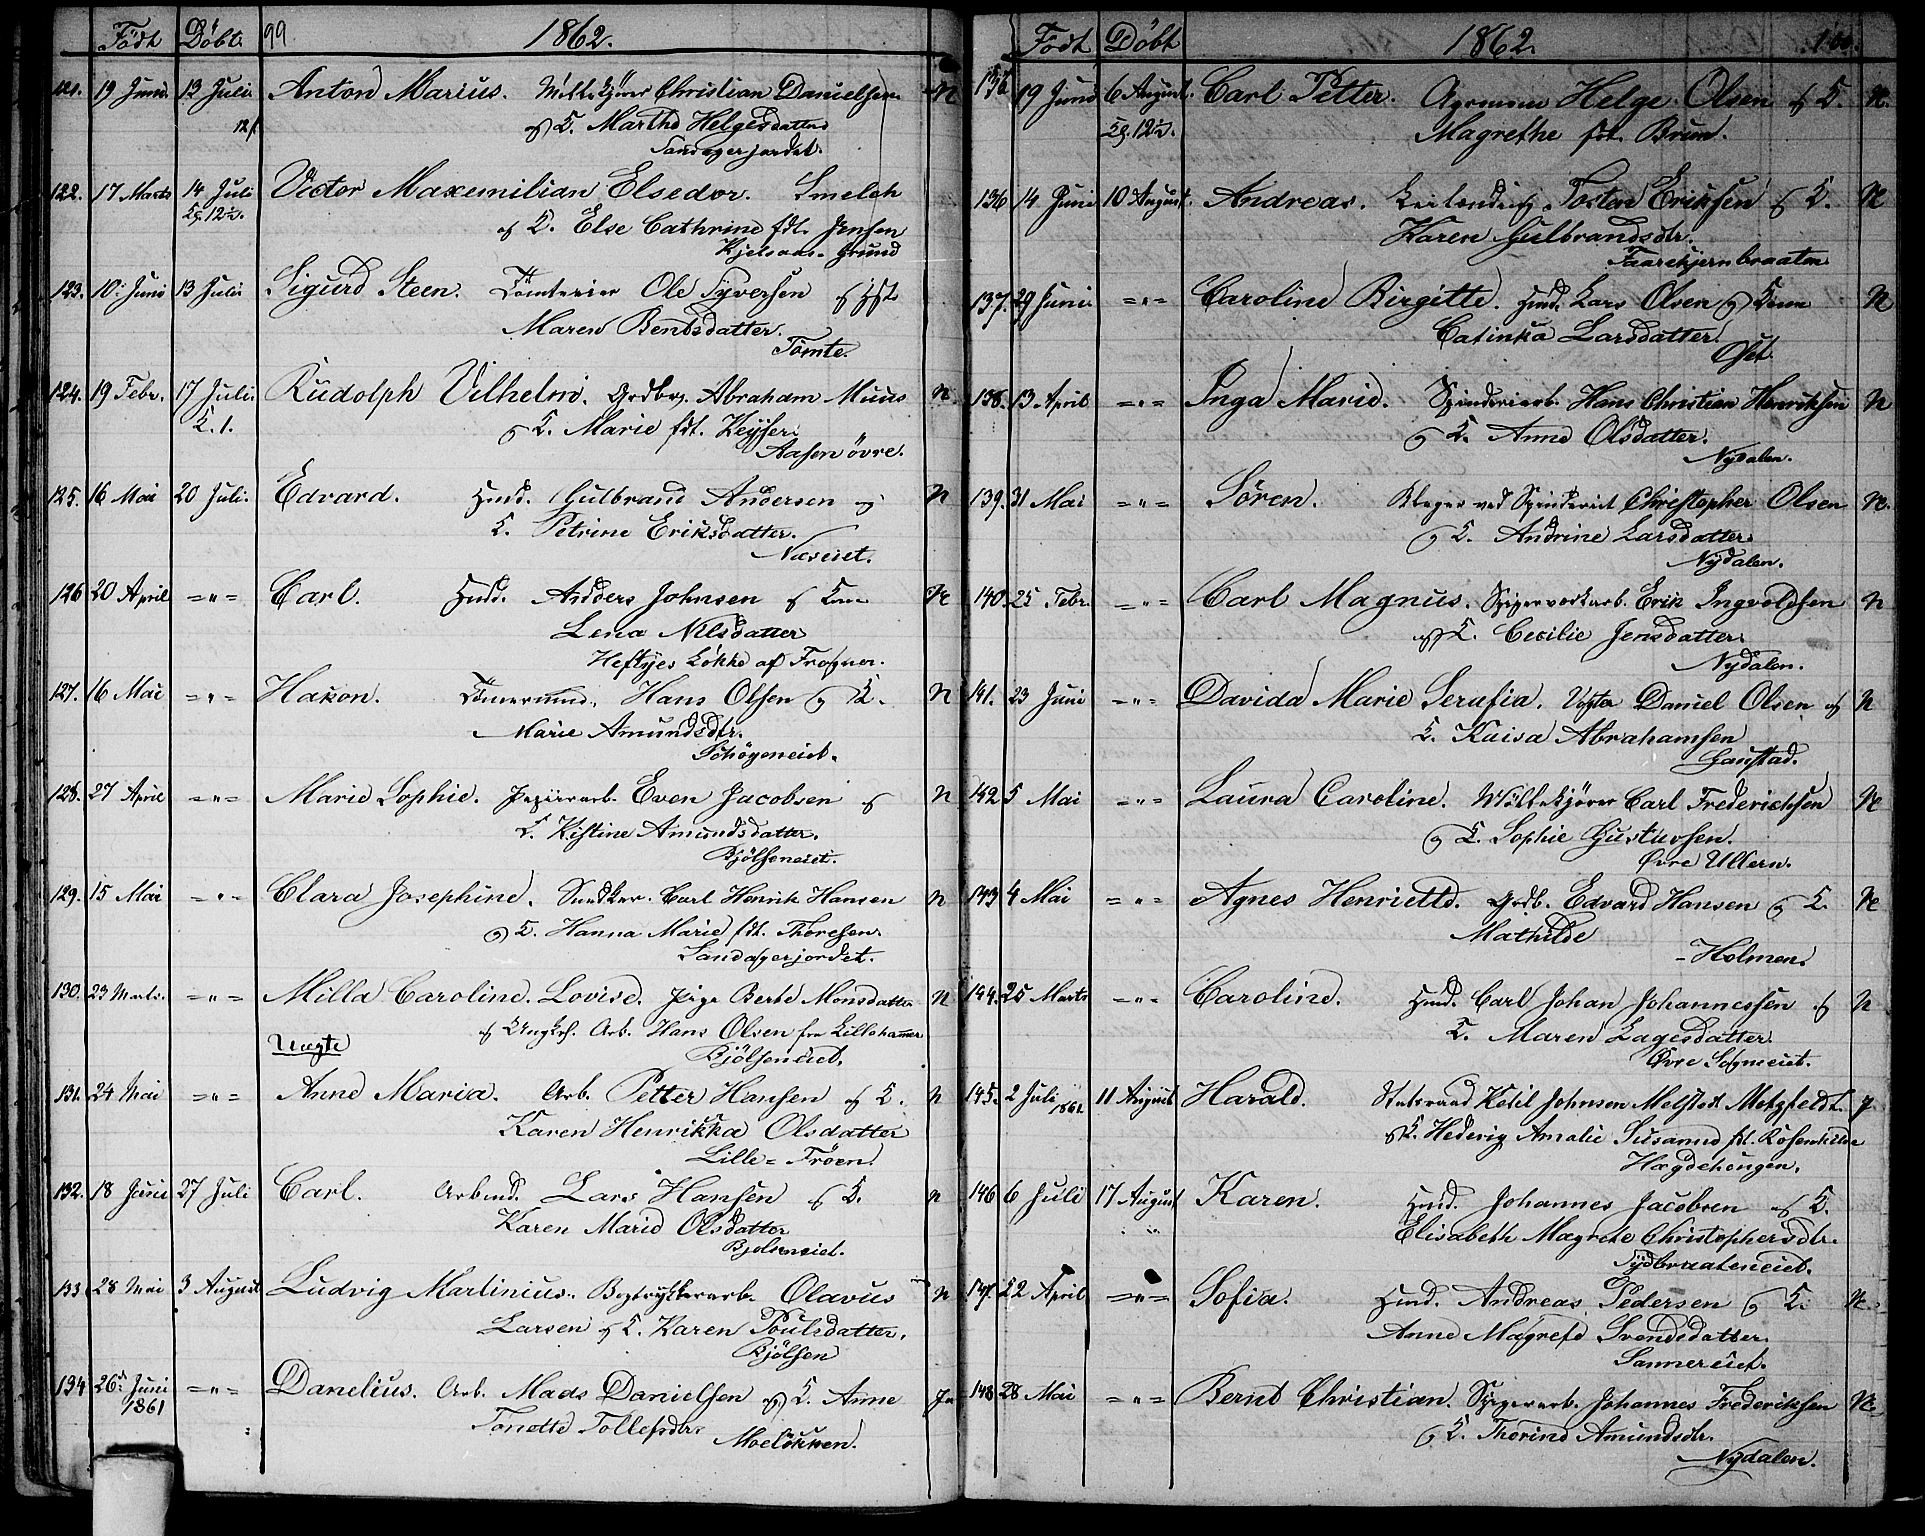 Födt Döbt 99. 1862.
121. 19 Juni 13 Juli Anton Marius. Christian Danielsen N
12/ og K. Marthe Helgesdatter
Sandagerjordet.
122. 17 Marts 14 Juli Victor Maxemilian Elsedor. Smelch
og K. Else Cathrine fdt. Jensen
Kjelsaas-Grund
123. 10 Juni 13 Juli Sigurd Steen. Tömteeier Ole Syversen og Hst
Maren Bentsdatter.
Tömte.
124. 19 Febr. 17 Juli. Rudolph Vilhelm. Grdbr. Abraham Muus N.
K. 1. og K. Marie fdt. Keyser.
Aasen övre.
125. 16 Mai 20 Juli. Edvard. Husmd. Gulbrand Andersen og N
K. Petrine Eriksdatter.
126 20 April =„= Carl. Husmd. Anders Johnsen og Kone N
Lena Nilsdatter
Heftyes Lökke af Frogner.
127. 16 Mai =„= Hakon. Tömermnd. Hans Olsen og K. N
Marie Amundsdtr.
128. 27 April =„= Marie Sophie. Papiirarb. Even Jacobsen og N
K. Kistine Amundsdatter.
Bjölseneiet.
129. 15 Mai =„= Clara Josephine. Snedker. Carl Henrik Hansen N
og K. Hanna Marie fdt. Thoresen.
Sandagerjordet.
130. 23 Marts. =„= Milla Caroline Lovise. Pige Berte Monsdatter N
og Ungkrl. Arb. Hans Olsen fra Lillehamer
Uægte Bjölseneiet.
131. 24 Mai =„= Anne Maria. Arb. Petter Hansen og K. N
Karen Henrikka Olsdatter
Lille=Fröen.
132. 18 Juni 27 Juli Carl. Arbmd. Lars Hansen og K. N
Karen Marie Olsdatter
Bjolseneiet.
133 28 Mai 3 August Ludvig Martinius. Bogtrykkerarb. Olavus N
Larsen og K. Karen Poulsdatter.
Bjölsen
134 26 Juni =„= Danelius. Arb. Mads Danielsen og K. Anne Ja
1861 Tonette Tollefsdtr.
Moelökken.
Födt Döbt 1862. 100.
19 Juni 6 August. Carl Petter. Helge Olsen og K. N.
Magrethe fdt. Bruun.
136 14 Juni 10 August. Andreas. Leilænding Tosten Eriksen og K. N
Karen Gulbrandsdtr.
137. 29 Juni =„= Caroline Birgitte. Husmd. Lars Olsen og Kone N
Catinka Larsdatter.
Oset
138. 13 April =„= Inga Marie. Spinderiarb. Hans Christian Henriksen N
og K. Anne Olsdatter.
Nydalen.
139. 31 Mai =„= Sören. ved Spinderiet Christopher Olsen N.
og K. Andrine Larsdatter.
Nydalen.
140. 25 Febr. =„= Carl Magnus. Spigerverkarb. Erik Ingvoldsen N
og K. Cecilie Jensdatter.
Nydalen.
141. 23 Juni =„= Davida Marie Serafia. Vogter Daniel Olsen og N
K. Kaisa Abrahamsen
Gaustad.
142 5 Mai =„= Laura Caroline. Carl Frederichsen N
og K. Sophie Gustavsen.
Övre Ullern.
143 4 Mai =„= Agnes Henriette. Grdb. Edvard Hansen og K. N
Mathilde
-Holmen.
144. 25 Marts =„= Caroline. Husmd. Carl Johan Johannessen og N
K. Maren Lagesdatter
Övre Sogneiet.
145. 2 Juli 1861. 11 August Harald. Statsraad Ketil Johnsen Melsted Motzfeldt. J
og K. Hedevig Amalie Susanne fdt. Rosenkilde
Hægdehougen.
146 6 Juli 17 August Karen. Husmd. Johannes Jacobsen og K.
Elisabeth Magrete Christophersdtr.
147. 22 April =„= Sofia. Husmd. Andreas Pedersen og K. N.
Anne Magrete Svendsdatter.
Sannereiet.
148 28 Mai =„= Bernt Christian. Spigerarb. Johannes Frederiksen N.
og K. Thorine Amundsdtr.
Nydalen.